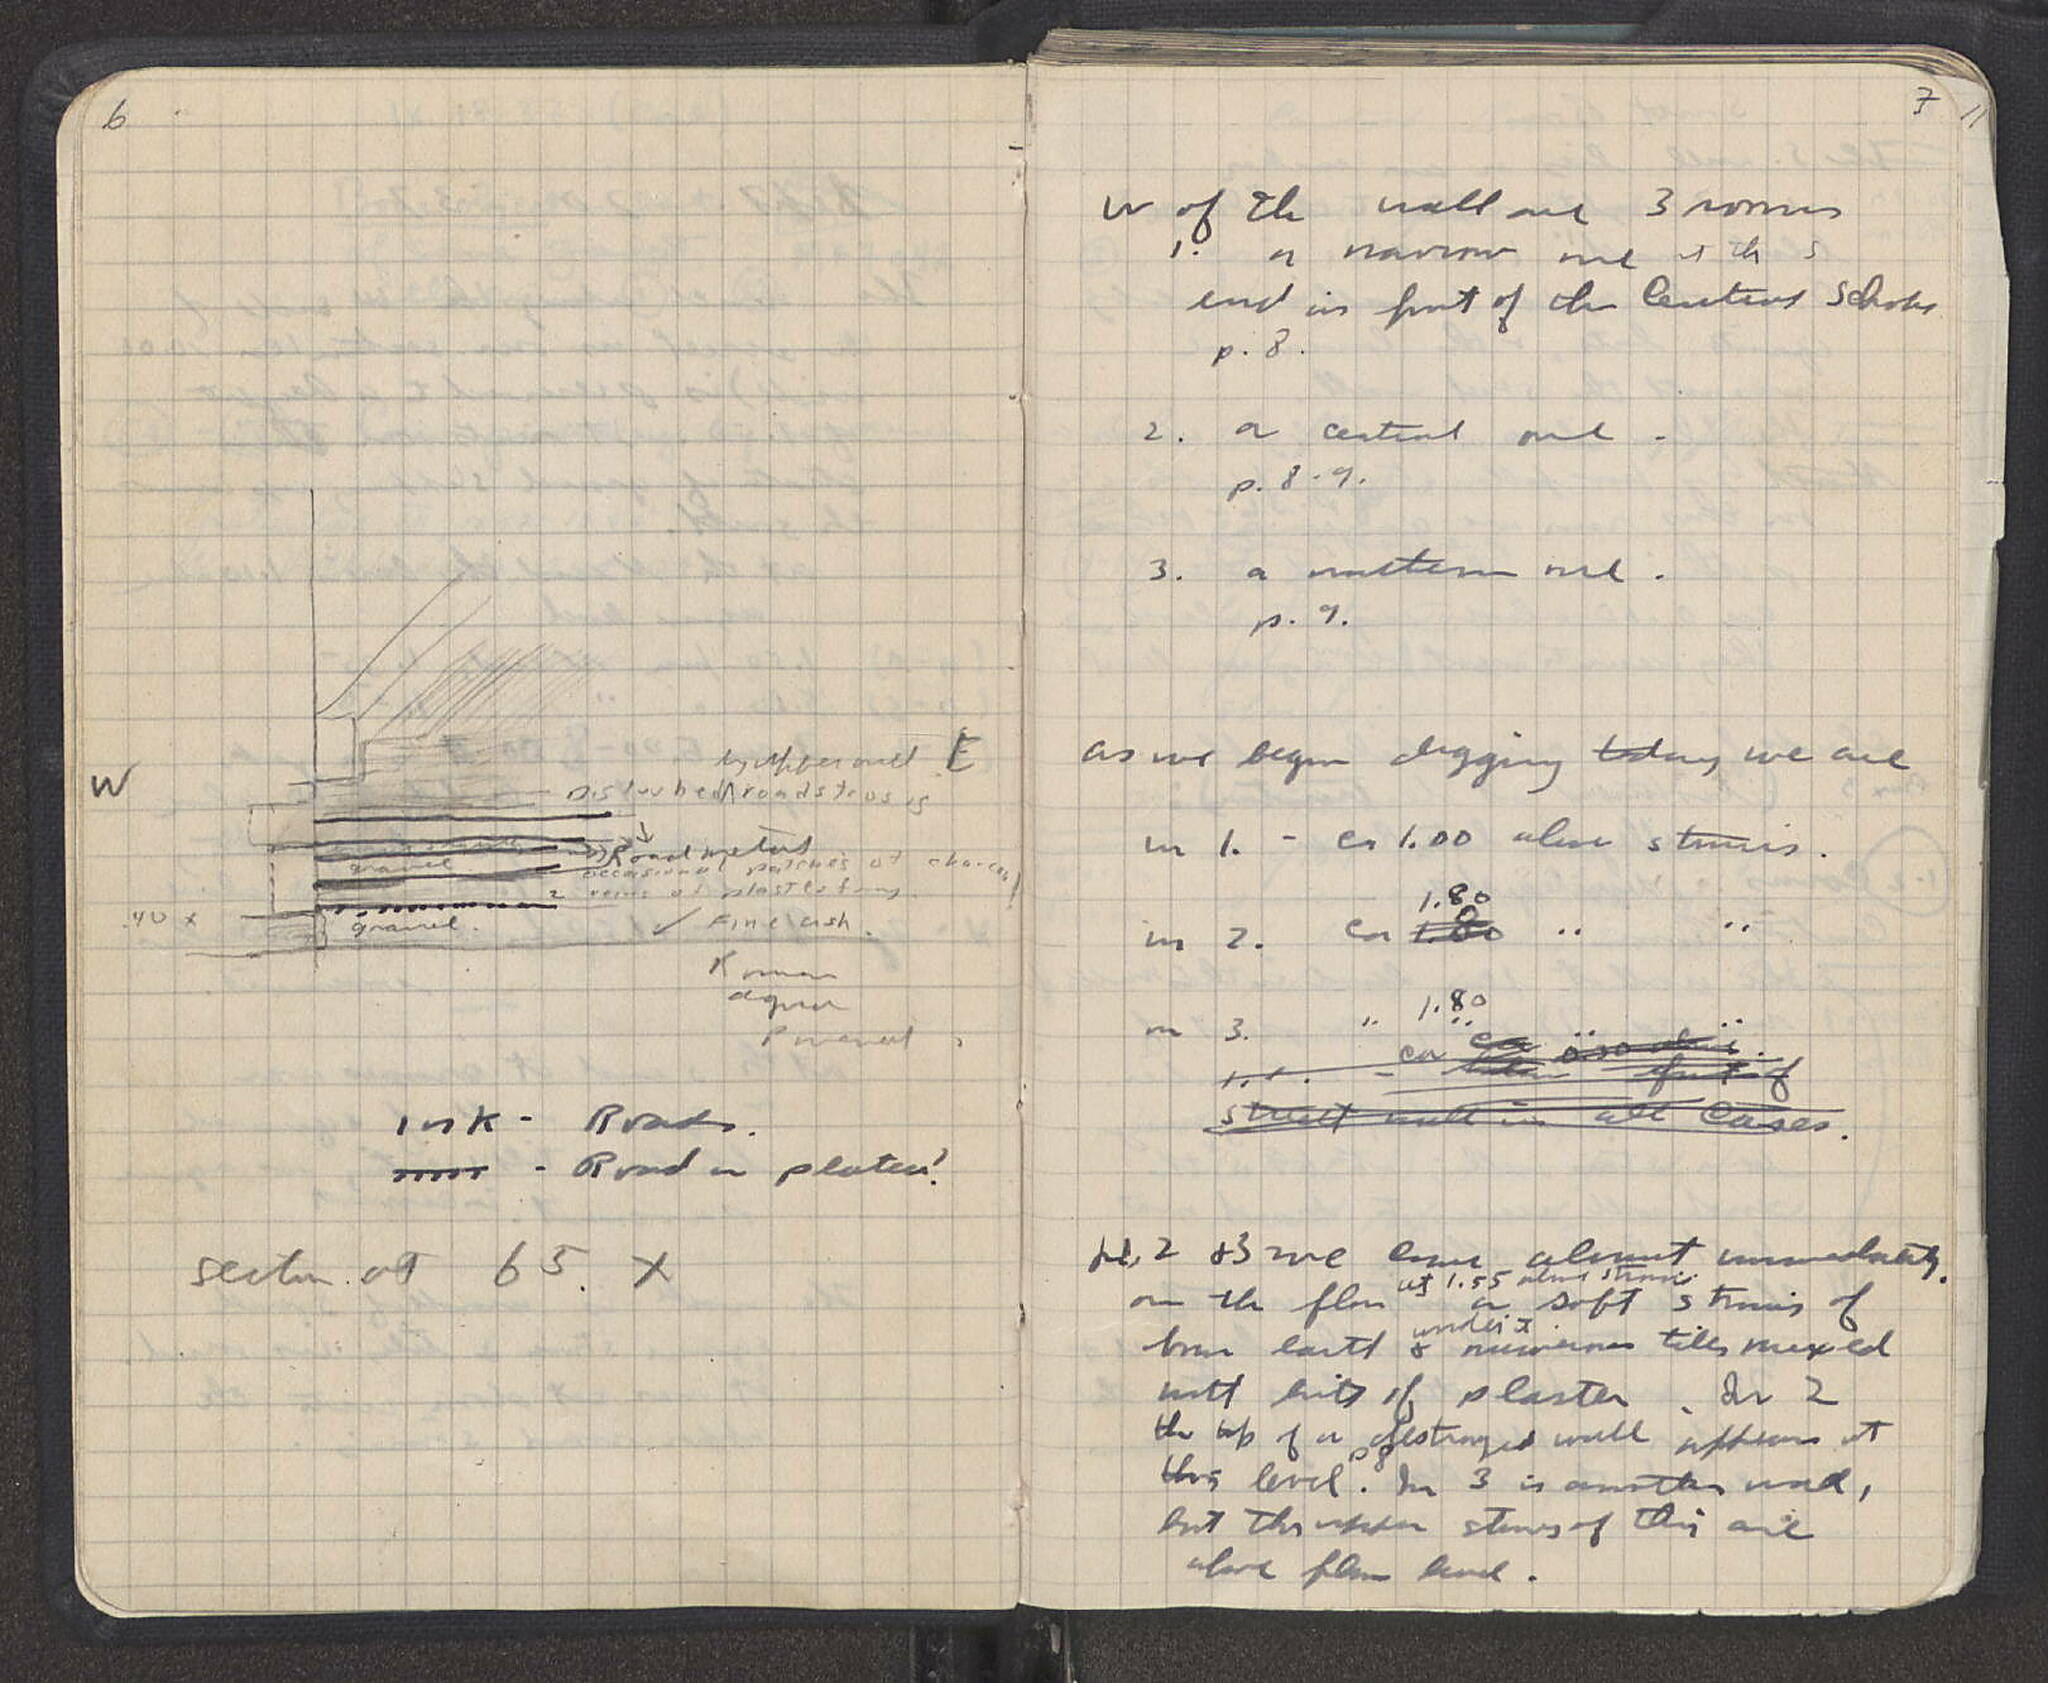 6
W
E
by upper wall
Disturbed road stros is
Road metal
gravel
occasional patches of charcoal
2 veins of plaster
.40 x
gravel.
Fine ash.
Roman
Pavement
ink - Roads.
- Road in plaster?
section at 65. X
7
11
W of the wall are 3 rooms
1. a narrow one at the S
end in front of the Central
p. 8.
2. a central one.
p. 8-9.
3. a northern one.
p. 9.
As we begin digging today we are
in 1. - ca 1.00 above strosis.
1.80
in 2. ca 1.00 " "
1.80
in 3. " " "
ca ca 0.50 above.
- below front of
street wall in all cases.
In 2 & 3 we come almost immediately
at 1.55 above strosis
on the floor a soft strosis of
under it
brown earth & numerous tiles mixed
with bits of plaster. In 2
the top of a destroyed wall appears at
p 8
this level. In 3 is another wall,
but the upper stones of this are
above floor level.